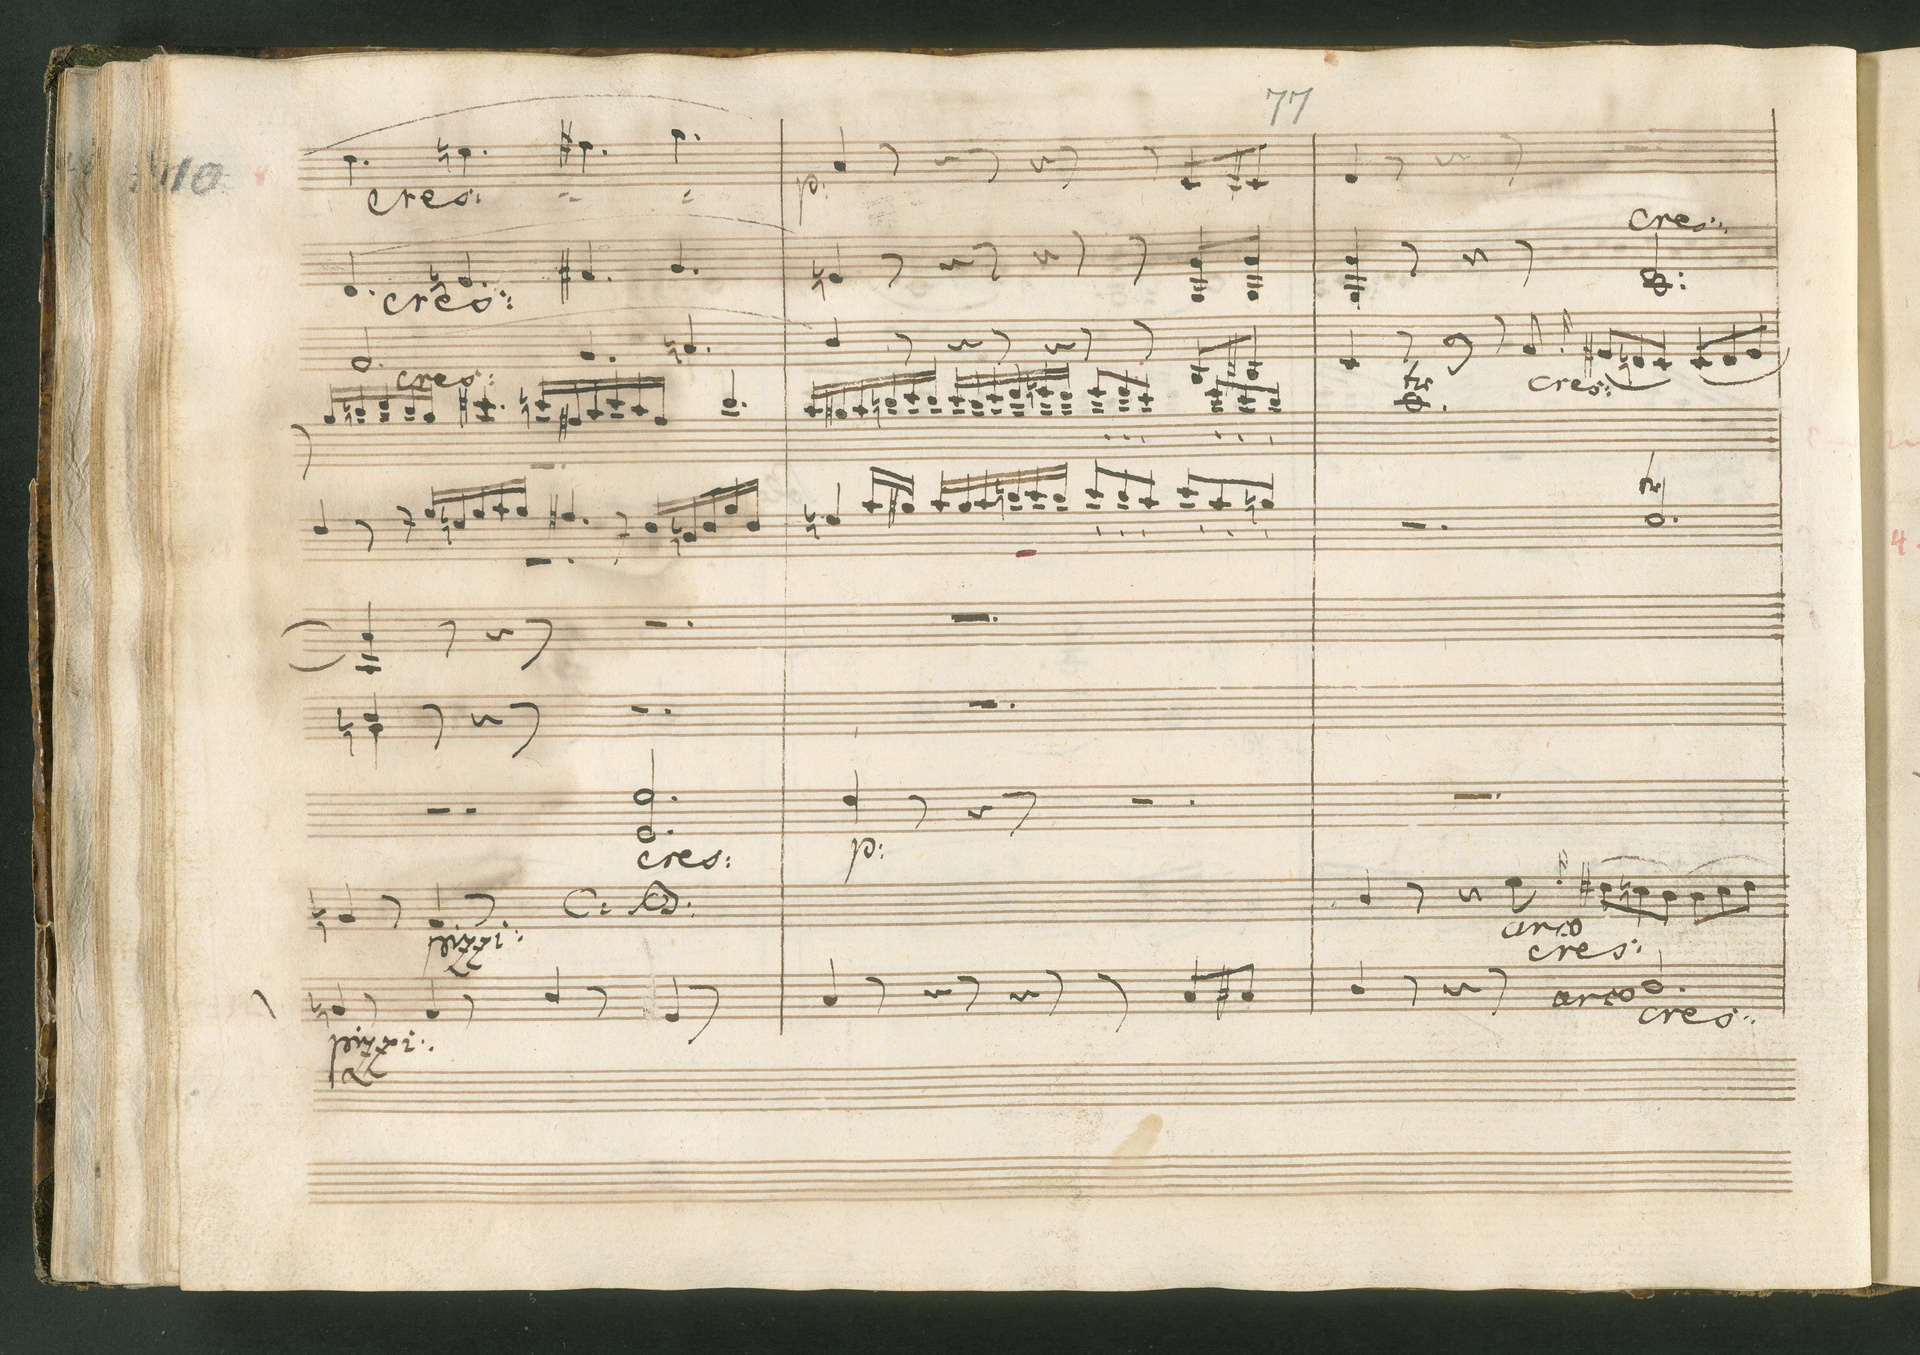 77
110
cres:
p:
cres:
cres:
cres:
cres:
tr
cres:
p:
pizzi:
arco
cres:
arco
cres:
pizzi: